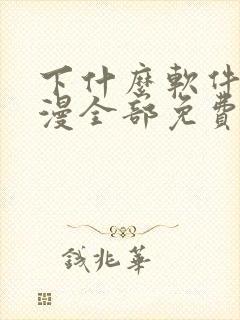 下什麼軟件
漫全部免費
錢兆華